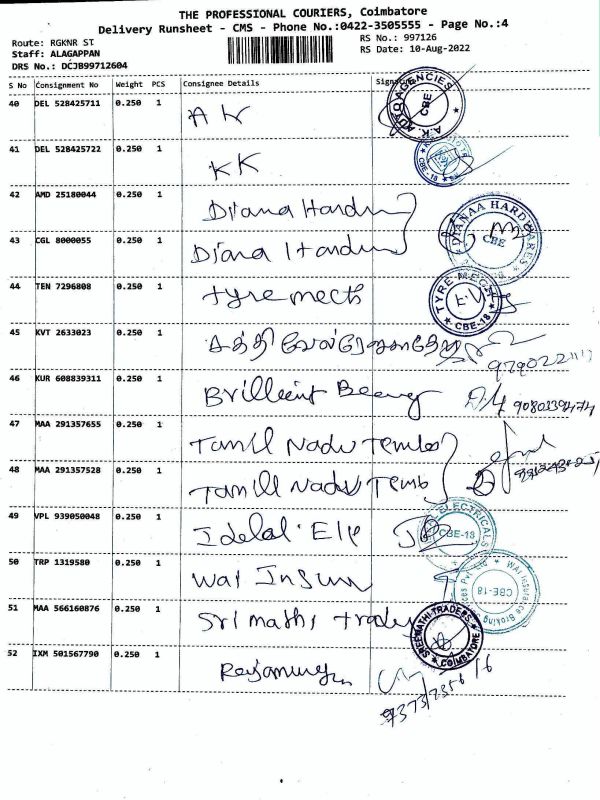 THE PROFESSIONAL COURIERS, Coimbatore
Delivery Runsheet - CMS - Phone No.:0422-3505555 - Page No.:4
Route: RGKNR ST
RS No.: 997126
Staff: ALAGAPPAN
RS Date: 10-Aug-2022
DRS No.: DCJB99712604
S No Consignment No Weight PCS Consignee Details Signature
40 DEL 528425711 0.250 1 A K
A.K. AUTO AGENCIES CBE
41 DEL 528425722 0.250 1 KK
CBE-18
42 AMD 25180044 0.250 1 Diana Hardw
43 CGL 8000055 0.250 1 Diana Hardw
DIANAA HARDWARES CBE
44 TEN 7296808 0.250 1 Tyre mech
TYRE MECH CBE-18
45 KVT 2633023 0.250 1 சக்தி
46 KUR 608839311 0.250 1 Brilleint Bearg
47 MAA 291357655 0.250 1 Tamil Nadu Tembo
48 MAA 291357528 0.250 1 Tamill Nadu Temb
49 VPL 939050048 0.250 1 Idelal Ele
ELECTRICALS CBE-18
50 TRP 1319580 0.250 1 Wai Insun
Wai Insurance Broking CBE-18
51 MAA 566160876 0.250 1 Sri mathi Trades
SREEMATHI TRADERS COIMBATORE
52 IXM 501567790 0.250 1